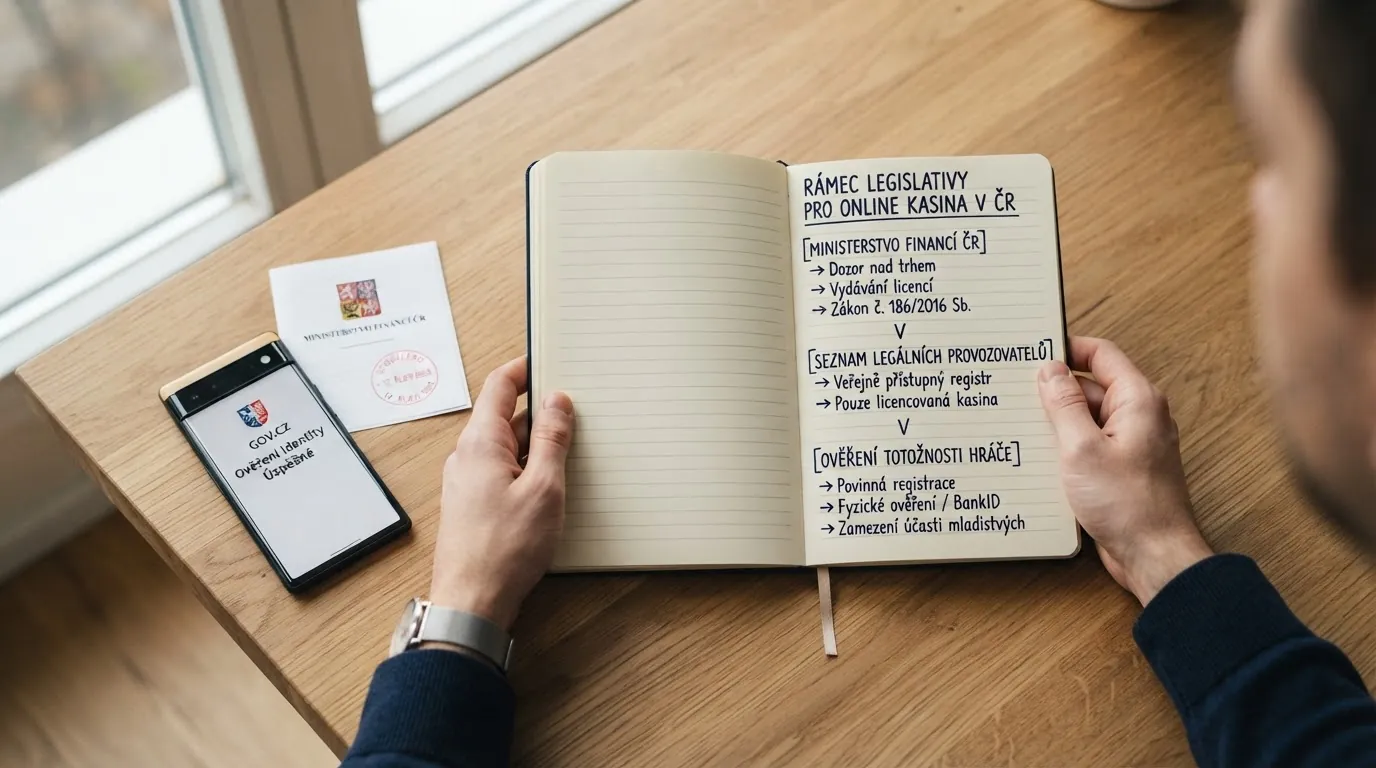 RÁMEC LEGISLATIVY
PRO ONLINE KASINA V ČR
[MINISTERSTVO FINANCÍ ČR]
→ Dozor nad trhem
→ Vydávání licencí
→ Zákon č. 186/2016 Sb.
[SEZNAM LEGÁLNÍCH PROVOZOVATELŮ]
→ Veřejně přístupný registr
→ Pouze licencovaná kasina
[OVĚŘENÍ TOTOŽNOSTI HRÁČE]
→ Povinná registrace
→ Fyzické ověření / BankID
→ Zamezení účasti mladistvých
GOV.CZ
Ověření Identity
Úspěšné